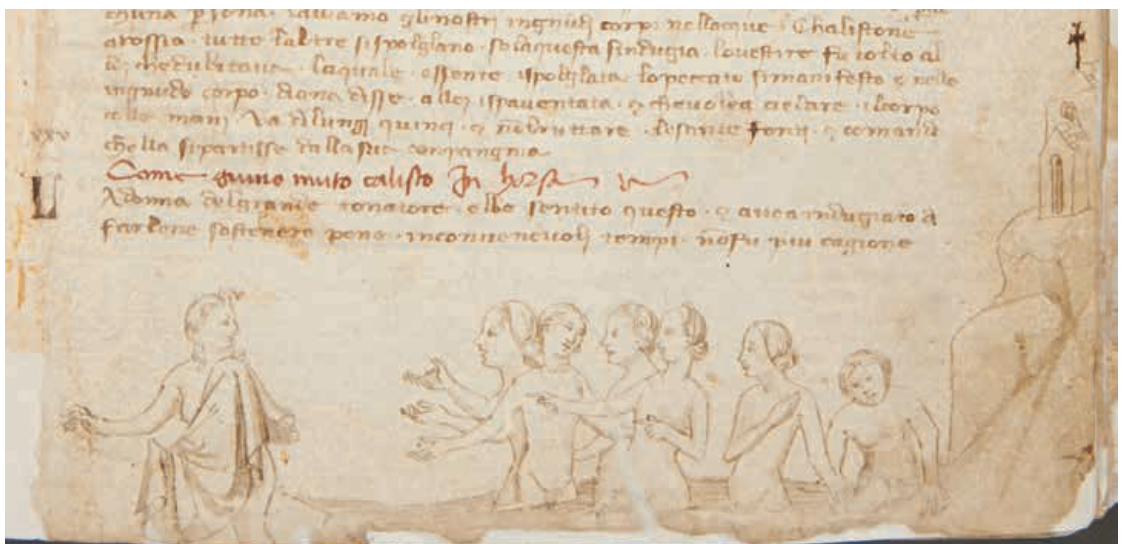 persona · laviamo gli nostri ingnudi corpi nellacque · Chalistone
arossia · tutte laltre si spolgliano · sola questa sindugia · lo vestire fu tolto al
che dubitava · laquale essente ispolgliata lo peccato si manifesto nello
ingnudo corpo · diana disse · a llei ispaventata · che volea cielare i lcorpo
colle mani Va di lungi quinci · bruttare · le sante fonti · comanda
che lla si partisse dalla sua compangnia
xxv
Come giuno muto calisto In horsa
L
A donna del grande tonatore · ebbe sentito questo · avea indugiato a
farlene sostenere pena · inconvenevoli tempi · nofu piu cagione